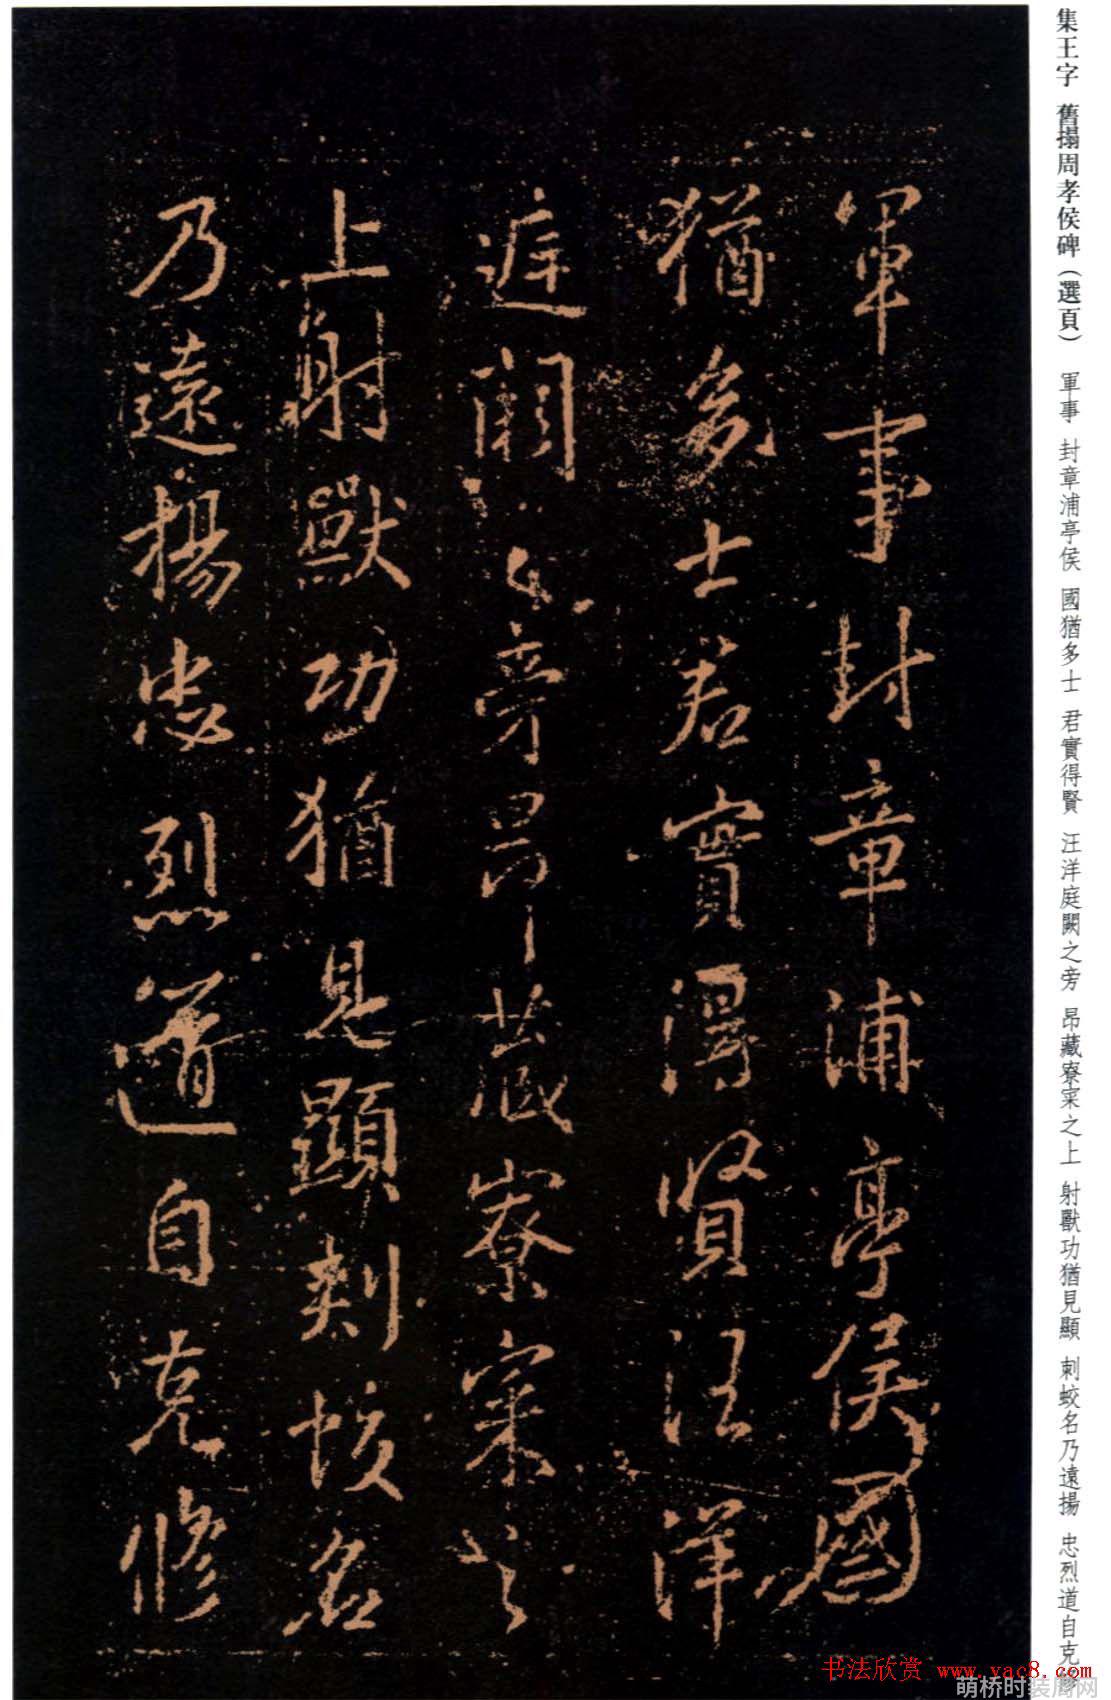 集王字 舊搨周孝侯碑（選頁） 軍事 封章浦亭侯 國猶多士 君實得賢 汪洋庭闕之旁 昂藏寮寀之上 射獸功猶見顯 刺蛟名乃遠揚 忠烈道自克修
軍事封章浦亭侯國
猶多士君實得賢汪洋
庭闕之旁昂藏寮寀之
上射獸功猶見顯刺蛟名
乃遠揚忠烈道自克修
书法欣赏 www.yac8.com
萌桥时装周网